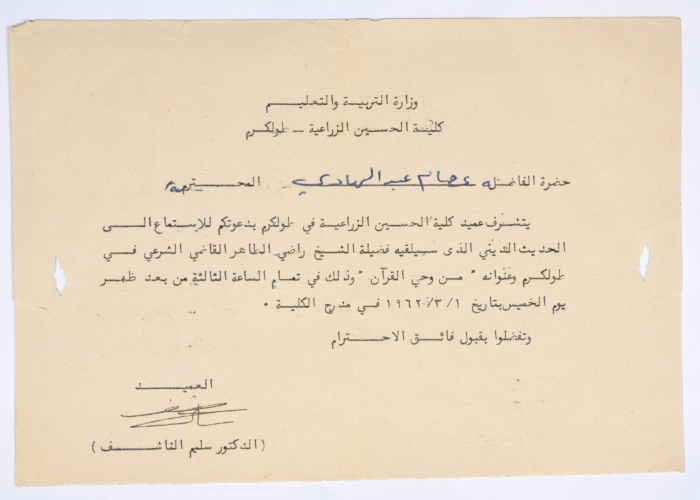 وزارة التربية والتعليم
كلية الحسين الزراعية - طولكرم
حضرة الفاضلة عصام عبد الهادي المحترمة
يتشرف عميد كلية الحسين الزراعية في طولكرم بدعوتكم للاستماع الى
الحديث الديني الذى سيلقيه فضيلة الشيخ راضي الطاهر القاضي الشرعي في
طولكرم وعنوانه " من وحي القرآن " وذلك في تمام الساعة الثالثة من بعد ظهر
يوم الخميس بتاريخ ١٩٦٢/٣/١ في مدرج الكلية ٠
وتفضلوا بقبول فائق الاحترام
العميد
( الدكتور سليم الناشف )